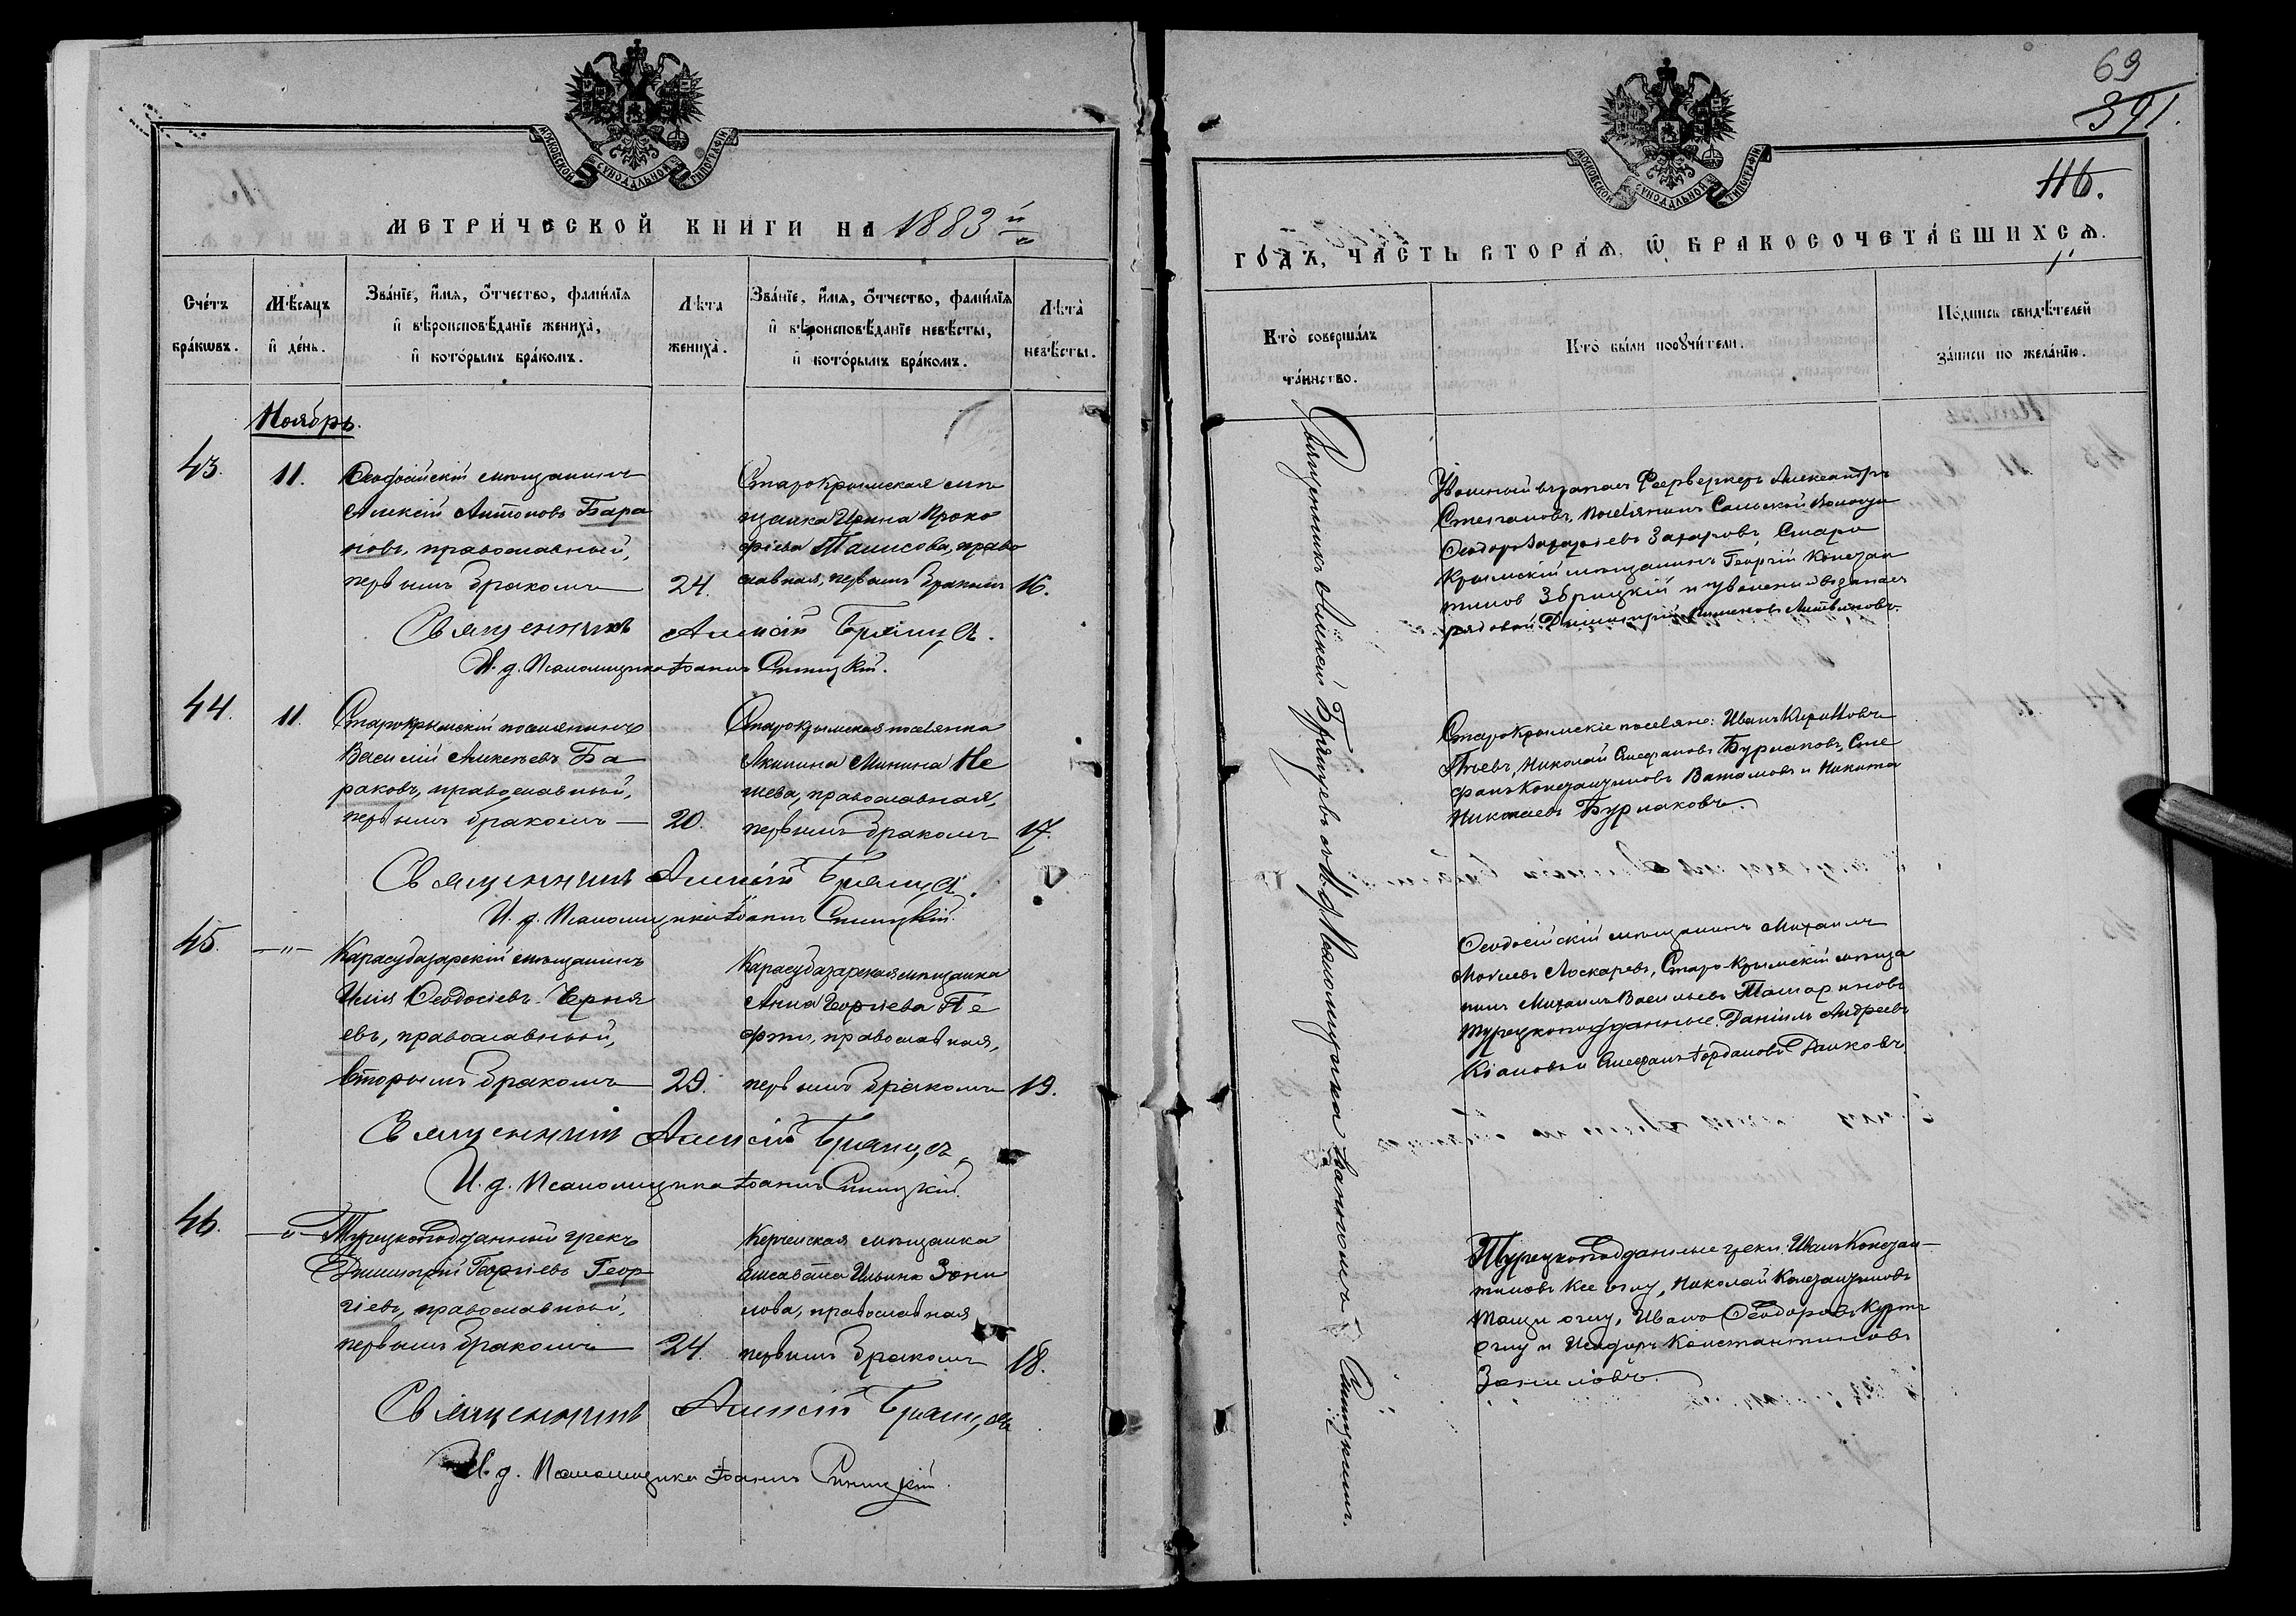 МОСКОВСКОЙ СѴНОДАЛЬНОЙ ТИПОГРАФІИ
МЕТРИ́ЧЕСКОЙ КНИГИ НА 1883й
Сче́тъ бра́кѡвъ.
Мѣ́сяцъ и҆ де́нь.
Зва́нїе, и҆́мя, ѻ҆́тчество, фами́лїя и҆ вѣроисповѣ́данїе жениха̀, и҆ кото́рымъ бра́комъ.
Лѣта жениха̀.
Зва́нїе, и҆́мя, ѻ҆́тчество, фами́лїя и҆ вѣроисповѣ́данїе невѣ́сты, и҆ кото́рымъ бра́комъ.
Лѣта̀ невѣ́сты.
Ноябрь.
43.
11.
Ѳеодосійскій мѣщанинъ
Алексій Антоновъ Бара
новъ, православный,
первымъ бракомъ
24.
Старокрымская мѣ
щанка Ирина Проко
фіева Танисова, право
славная, первымъ бракомъ
16.
Священникъ Алексій Бряцевъ.
И. д. Псаломщика Іоаннъ Синицкій.
44.
11.
Старокрымскій поселянинъ
Василій Алексѣевъ Ба
раковъ, православный,
первымъ бракомъ
20.
Старокрымская поселянка
Акилина Минина Не
шева, православная,
первымъ бракомъ
17.
Священникъ Алексій Бряцевъ.
И. д. Псаломщика Іоаннъ Синицкій.
45.
—"—
Карасубазарскій мѣщанинъ
Илія Ѳеодосіевъ Черня
евъ, православный,
вторымъ бракомъ
29.
Карасубазарская мѣщанка
Анна Георгіева
православная,
первымъ бракомъ
19.
Священникъ Алексій Бряцевъ
И. д. Псаломщика Іоаннъ Синицкій.
46.
—"—
Турецкоподданный грекъ
Димитрій Георгіевъ Геор
гіевъ, православный,
первымъ бракомъ
24.
Керченская мѣщанка
Елисавета Ильина Зони
лова, православная
первымъ бракомъ
18.
Священникъ Алексій Бряцевъ
И. д. Псаломщика Іоаннъ Синицкій.
69
391.
116.
МОСКОВСКОЙ СѴНОДАЛЬНОЙ ТИПОГРАФІИ
ГО́ДЪ, ЧА́СТЬ ВТОРА́Ѧ, Ѡ БРАКОСОЧЕТА́ВШИХСѦ.
Кто̀ соверша́лъ та́инство.
Кто̀ бы́ли порꙋчи́тели.
По́дпись свидѣ́телей за́писи по жела́нїю.
Священникъ Алексій Бряцевъ съ И. д. Псаломщика Іоанномъ Синицкимъ.
Уволенный въ запасъ Фейерверкеръ Александръ
Степановъ, поселянинъ Салынской Волости
Ѳеодоръ Захаріевъ Захаровъ, Старо
Крымскій мѣщанинъ Георгій Констан
тиновъ Збрицкій и уволенный въ запасъ
рядовой Димитрій Литвиновъ.
Старокрымскіе поселяне: Иванъ Кирилловъ
Николай Стефановъ Бурлаковъ, Сте
фанъ Константиновъ Ватамовъ и Никита
Николаевъ Бурлаковъ.
Ѳеодосійскій мѣщанинъ Михаилъ
Лоскаревъ, Старо-Крымскій мѣща
нинъ Михаилъ Васильевъ Татариновъ
турецкоподданные: Даніилъ Андреевъ
и Стефанъ Іордановъ
Турецкоподданные греки: Иванъ Констан—
тиновъ оглу, Николай Константиновъ
оглу, Иванъ Ѳеодоровъ Куртъ
Оглу и Исидоръ Константиновъ
Зониловъ.